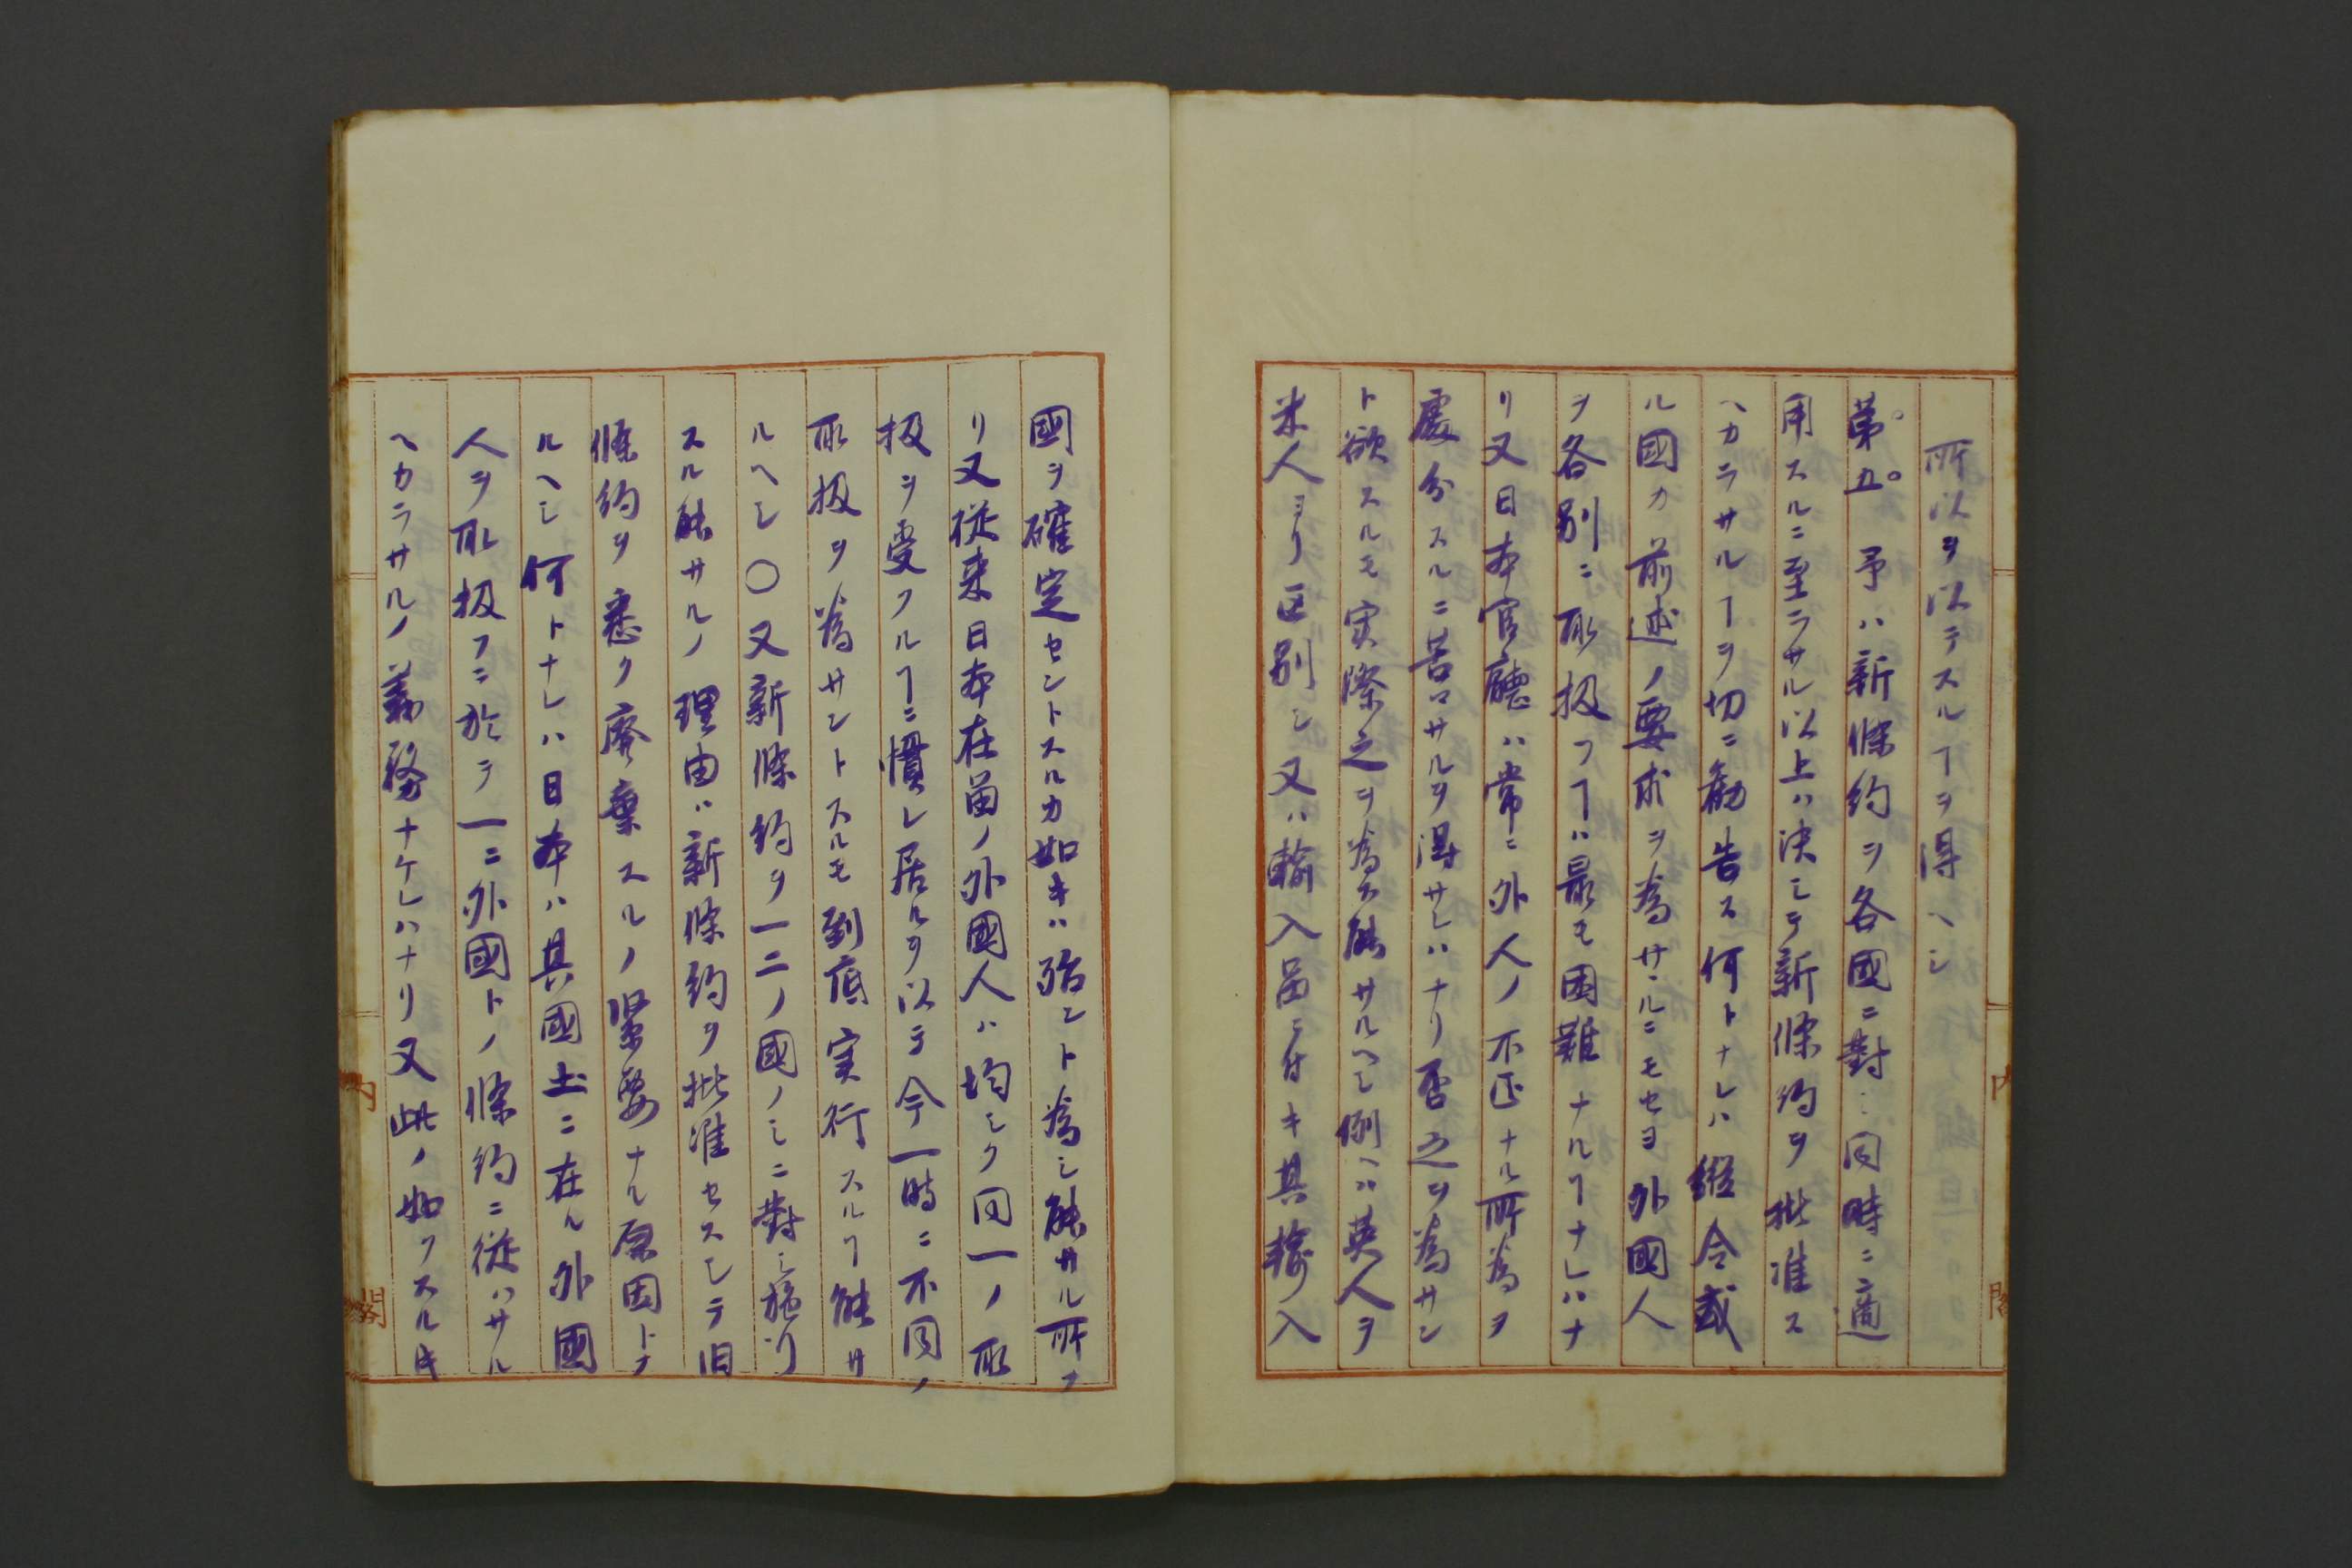 所以ヲ以テスルヿヲ得ヘシ
第五。予ハ新條約ヲ各國ニ對シ同時ニ適
用スルニ至ラサル以上ハ決シテ新條約ヲ批准ス
ヘカラサルヿヲ切ニ勧告ス何トナレハ縦令或
ル國カ前述ノ要求ヲ為サヽルニモセヨ外國人
ヲ各別ニ取扱フヿハ最モ困難ナルヿナレハナ
リ又日本官廳ハ常ニ外人ノ不正ナル所為ヲ
處分スルニ苦マサルヲ得サレハナリ否之ヲ為サン
ト欲スルモ実際之ヲ為ス能サルヘシ例ヘハ英人ヲ
米人ヨリ区別シ又ハ輸入品ニ付キ其輸入
國ヲ確定セントスルカ如キハ殆ント為シ能サル所ナ
リ又従来日本在留ノ外國人ハ均シク同一ノ取
扱ヲ受フルヿニ慣レ居ルヲ以テ今一時ニ不同ノ
取扱ヲ為サントスルモ到底実行スルヿ能サ
ルヘシ〇又新條約ヲ一二ノ國ノミニ對シ施行
スル能サルノ理由ハ新條約ヲ批准セスシテ旧
條約ヲ悉ク廃棄スルノ緊要ナル原因トナ
ルヘシ何トナレハ日本ハ其國土ニ在ル外國
人ヲ取扱フニ於テ一ニ外國トノ條約ニ從ハサル
ヘカラサルノ義務ナケレハナリ又此ノ如クスルキ
内
閣
内
閣